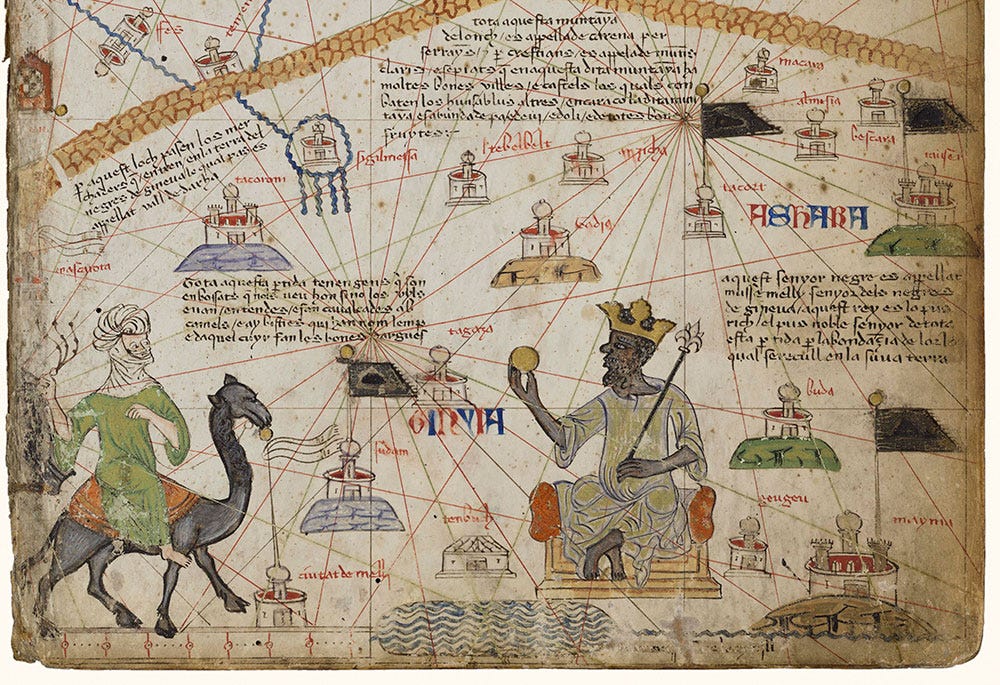 tota aquesta muntaya
delonch / es appellade carena per
serrayns / e per crestians / es appelade munis
claris / e sepiats q en aquesta dita muntaya ha
moltes bones villes / e castels los quals con
baten los huns ab lus altres / encara co la dita mun
taya / es abunda de pa e de vi / e d oli / e de totes bones
fruytes
fes
macara
almisia
bescara
P aquest loch pasen los mer
chaders q entren en la terra del
negres de gineva lo qual pas es
appellat vall de darha
sigilmessa
tebelbelt
tacoroni
tacort
ASHARA
tota aquesta ptida tenen gens q son
enbosats q nols veu hom sino los uyls
e van / en tendes / e fan cavalcades ab
camels / e ay bisties qui han nom lemp
e daquel cuyr fan les bones dargues
aquest senyor negre es appellat
musse melly senyor dels negres
de gineva / aquest rey es lo pus
rich / el pus noble senyor de tota
esta ptida per labondancia de lor lo
qual se recull en la suva terra
tagaza
buda
GINVIA
sudam
tenbuch
geugeu
mayma
ciutat de melly